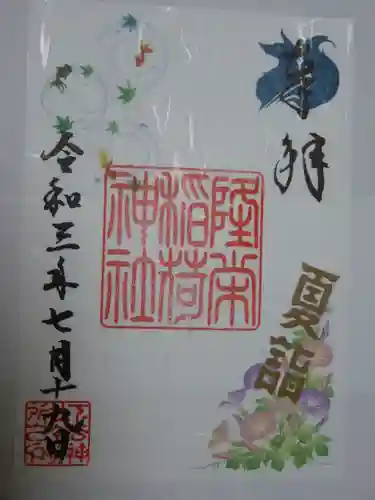 奉拝
夏詣
隆栄
稲荷
神社
令和三年七月十九日